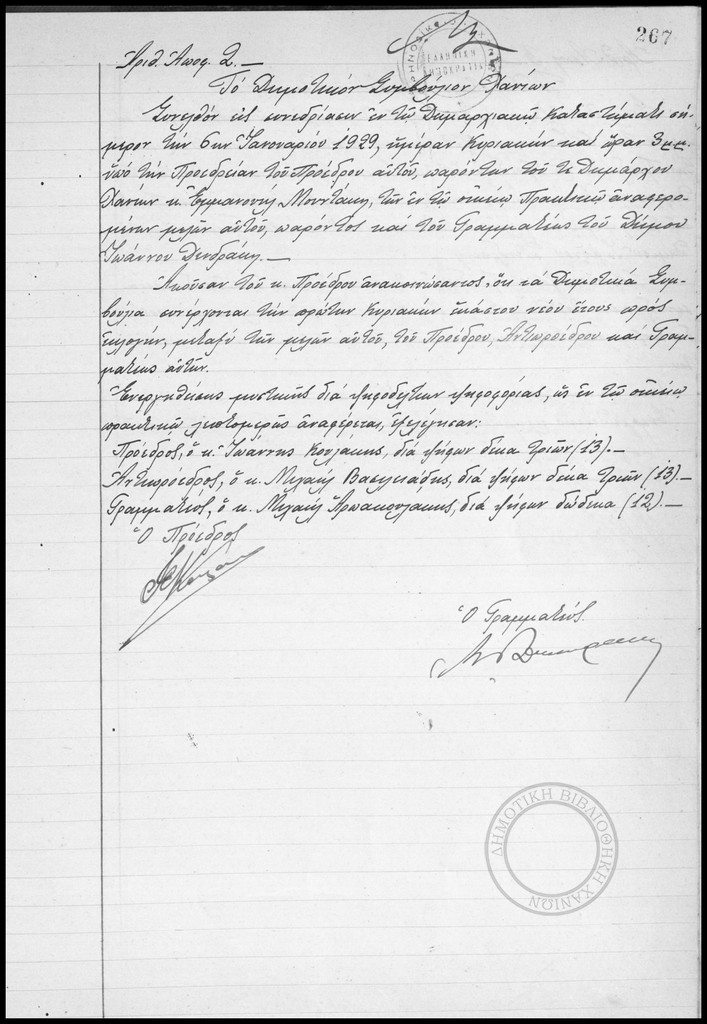 267
Ἀριθ. Ἀποφ. 2.—
Τὸ Δημοτικὸν Συμβούλιον Χανίων
Συνελθὸν εἰς συνεδρίασιν ἐν τῷ Δημαρχιακῷ Καταστήματι σή-
μερον τὴν 6ην Ἰανουαρίου 1929, ἡμέραν Κυριακὴν καὶ ὥραν 3 μ.μ.
ὑπὸ τὴν Προεδρείαν τοῦ Προέδρου αὐτοῦ, παρόντων τοῦ τε Δημάρχου
Χανίων κ. Ἐμμανουὴλ Μουντάκη, τῶν ἐν τῷ οἰκείῳ Πρακτικῷ ἀναφερο-
μένων μελῶν αὐτοῦ, παρόντος καὶ τοῦ Γραμματέως τοῦ Δήμου
Ἰωάννου Δενδράκη.—
Ἀκοῦσαν τοῦ κ. Προέδρου ἀνακοινώσαντος, ὅτι τὰ Δημοτικὰ Συμ-
βούλια συνέρχονται τὴν πρώτην Κυριακὴν ἑκάστου νέου ἔτους πρὸς
ἐκλογὴν, μεταξὺ τῶν μελῶν αὐτοῦ, τοῦ Προέδρου, Ἀντιπροέδρου καὶ Γραμ-
ματέως αὐτῶν.
Ἐνεργηθείσης μυστικῆς διὰ ψηφοδελτίων ψηφοφορίας, ὡς ἐν τῷ οἰκείῳ
πρακτικῷ λεπτομερῶς ἀναφέρεται, ἐξελέγησαν:
Πρόεδρος, ὁ κ. Ἰωάννης Κουλάκης, διὰ ψήφων δέκα τριῶν (13).—
Ἀντιπρόεδρος, ὁ κ. Μιχαὴλ Βασιλειάδης, διὰ ψήφων δέκα τριῶν (13).—
Γραμματεύς, ὁ κ. Μιχαὴλ διὰ ψήφων δώδεκα (12).—
Ὁ Πρόεδρος
Ὁ Γραμματεύς
ΔΗΜΟΤΙΚΗ ΒΙΒΛΙΟΘΗΚΗ ΧΑΝΙΩΝ